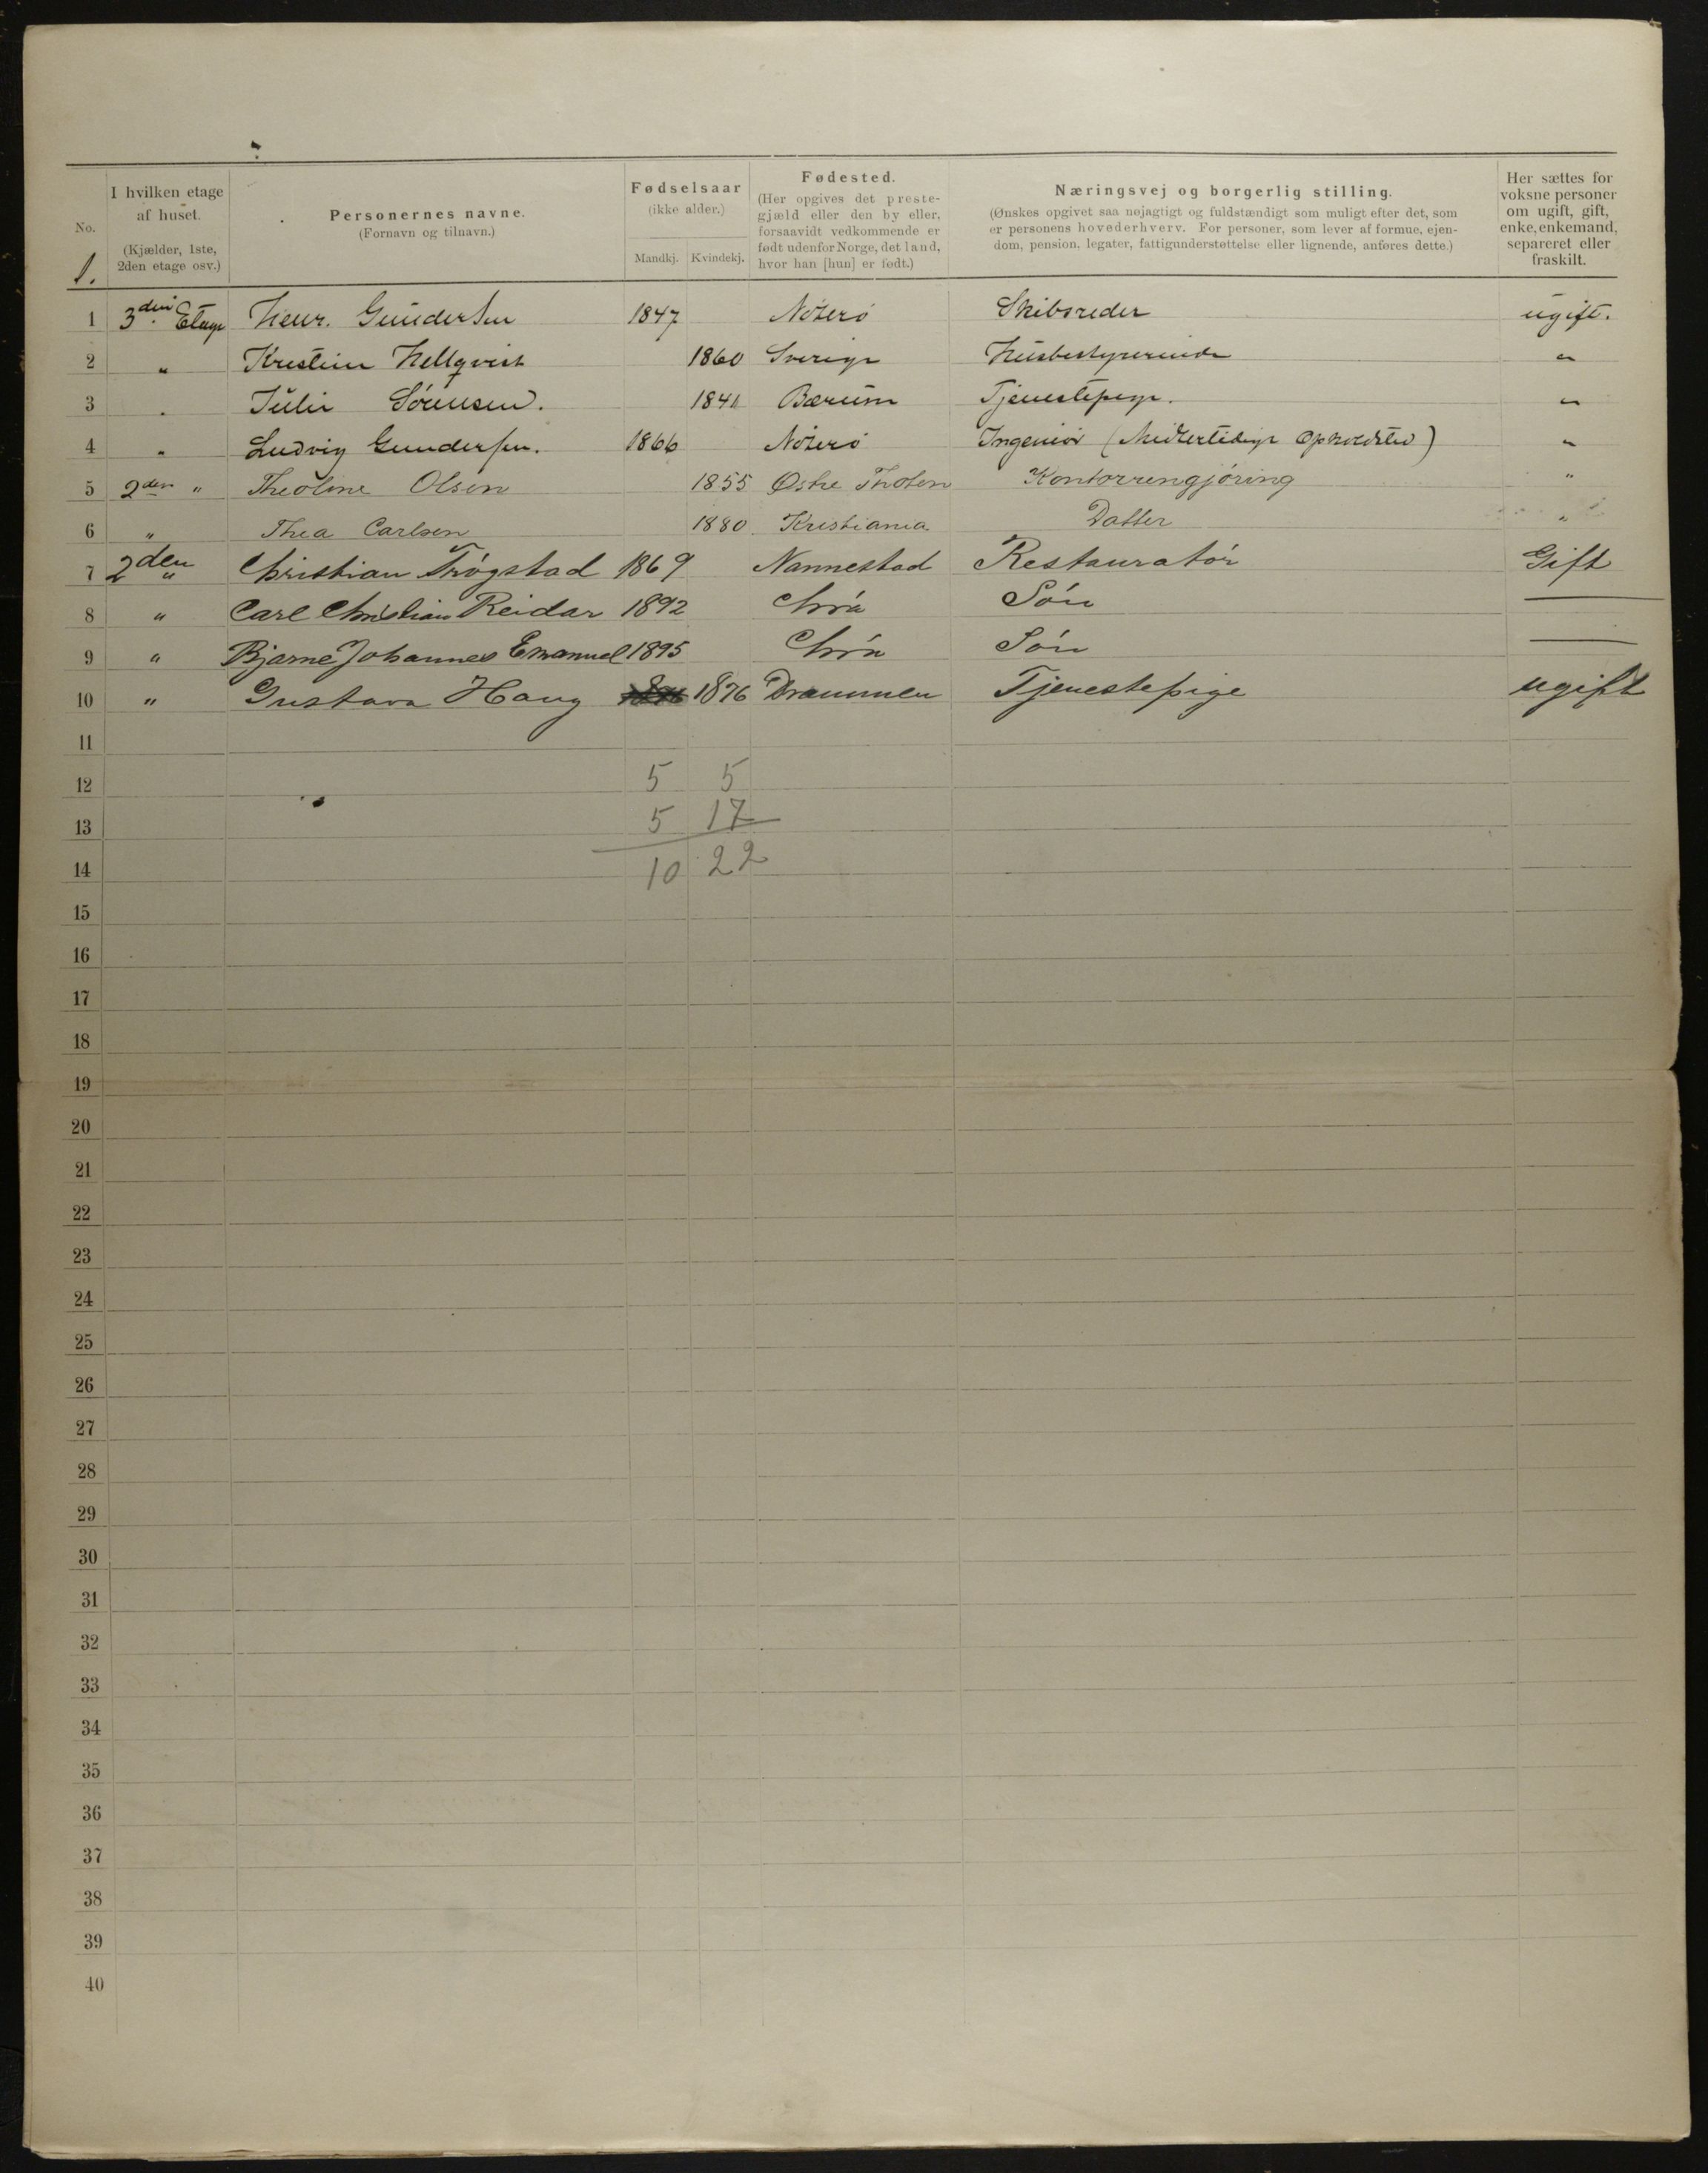 No. | I hvilken etage af huset. (Kjælder, 1ste, 2den etage osv.) | Personernes navne. (Fornavn og tilnavn.) | Fødselsaar (ikke alder.) Mandkj. Kvindekj. | Fødested. (Her opgives det prestegjæld eller den by eller, forsaavidt vedkommende er født udenfor Norge, det land, hvor han [hun] er født.) | Næringsvej og borgerlig stilling. (Ønskes opgivet saa nøjagtigt og fuldstændigt som muligt efter det, som er personens hovederhverv. For personer, som lever af formue, ejendom, pension, legater, fattigunderstøttelse eller lignende, anføres dette.) | Her sættes for voksne personer om ugift, gift, enke, enkemand, separeret eller fraskilt.
1.
1 3den Etage Henr. Gundersen 1847 Nøterø Skibsreder ugift.
2 " Kristine Hellqvist 1860 Sverige Husbestyrerinde "
3 " Julie Sørensen. 184 Bærum Tjenestepige. "
4 " Ludvig Gundersen. 1866 Nøterø Ingeniør (Midlertidige Opholdsted) "
5 2den " Theoline Olsen 1855 Østre Thoten Kontorrengjøring "
6 " Thea Carlsen 1880 Kristiania Datter "
7 2den " Christian Trøgstad 1869 Nannestad Restauratør Gift
8 " Carl Christian Reidar 1892 Chra Søn —
9 " Bjarne Johannes Emanuel 1895 Chra Søn —
10 " Gustava Haug 1876 Drammen Tjenestepige ugift
11
12 5 5
13 5 17
14 10 22
15
16
17
18
19
20
21
22
23
24
25
26
27
28
29
30
31
32
33
34
35
36
37
38
39
40